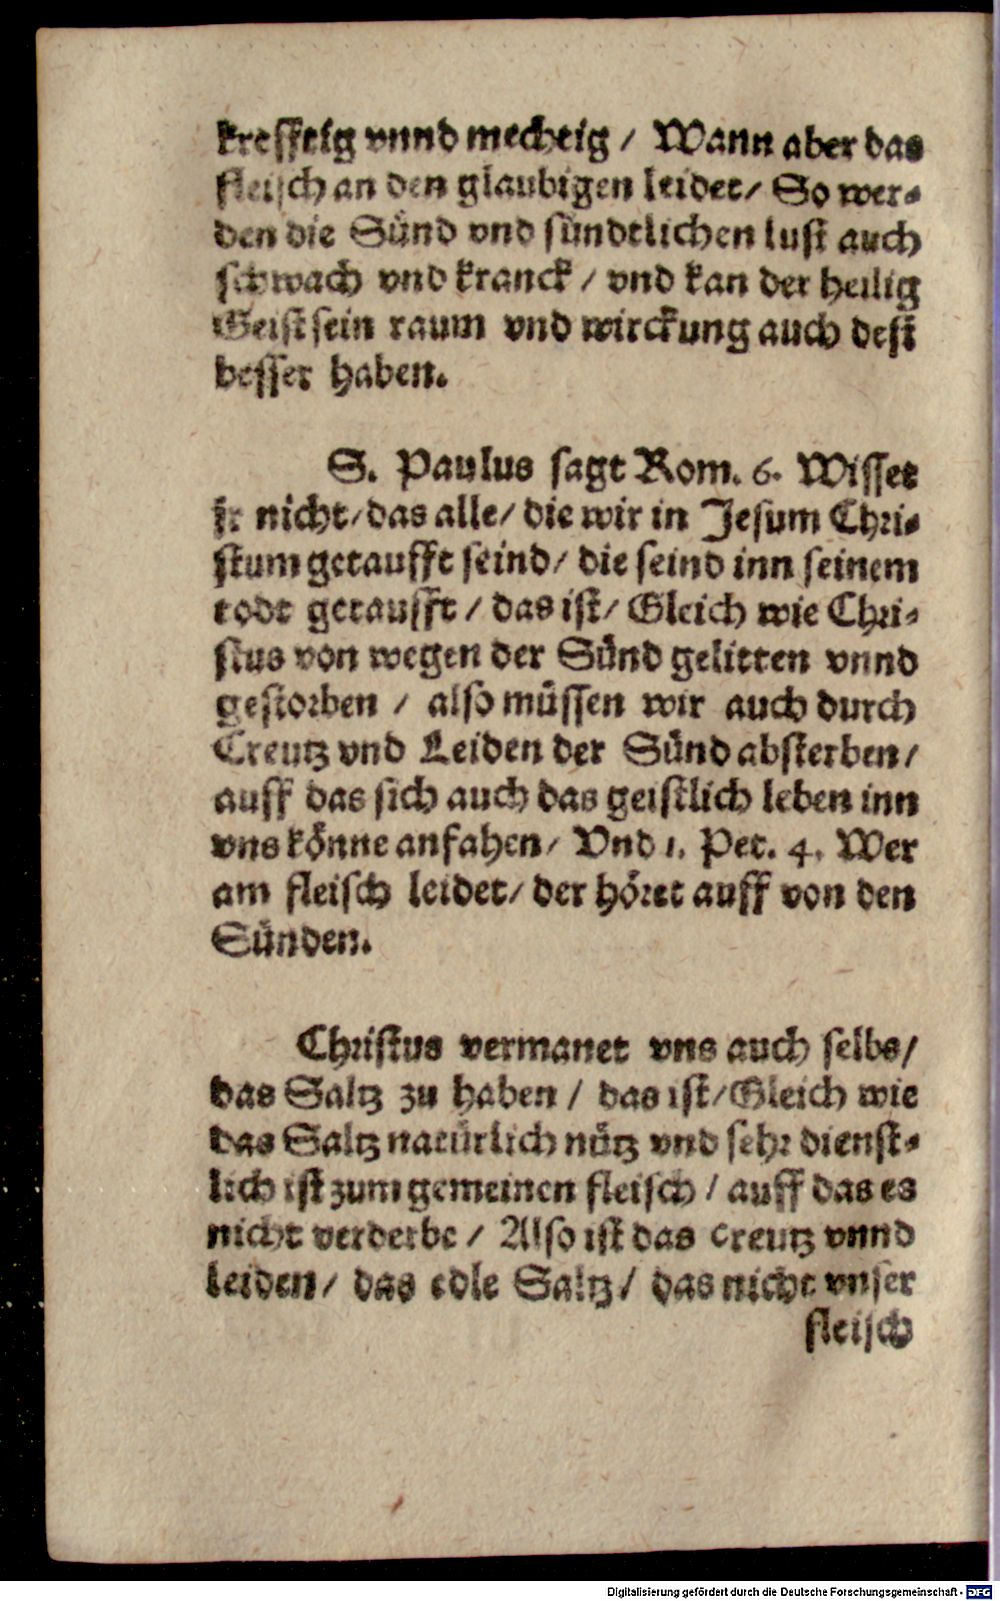 krefftig vnnd mechtig / Wann aber das
fleisch an den glaubigen leidet / So wer-
den die Sünd vnd sündtlichen lust auch
schwach vnd kranck / vnd kan der heilig
Geist sein raum vnd wirckung auch dest
besser haben.
S. Paulus sagt Rom. 6. Wisset
jr nicht / das alle / die wir in Jesum Chri-
stum getaufft seind / die seind inn seinem
todt getaufft / das ist / Gleich wie Chri-
stus von wegen der Sünd gelitten vnnd
gestorben / also müssen wir auch durch
Creutz vnd Leiden der Sünd absterben /
auff das sich auch das geistlich leben inn
vns könne anfahen / Vnd 1. Pet. 4. Wer
am fleisch leidet / der höret auff von den
Sünden.
Christus vermanet vns auch selbs /
das Saltz zu haben / das ist / Gleich wie
das Saltz natürlich nütz vnd sehr dienst-
lich ist zum gemeinen fleisch / auff das es
nicht verderbe / Also ist das Creutz vnnd
leiden / das edle Saltz / das nicht vnser
fleisch
Digitalisierung gefördert durch die Deutsche Forschungsgemeinschaft - DFG